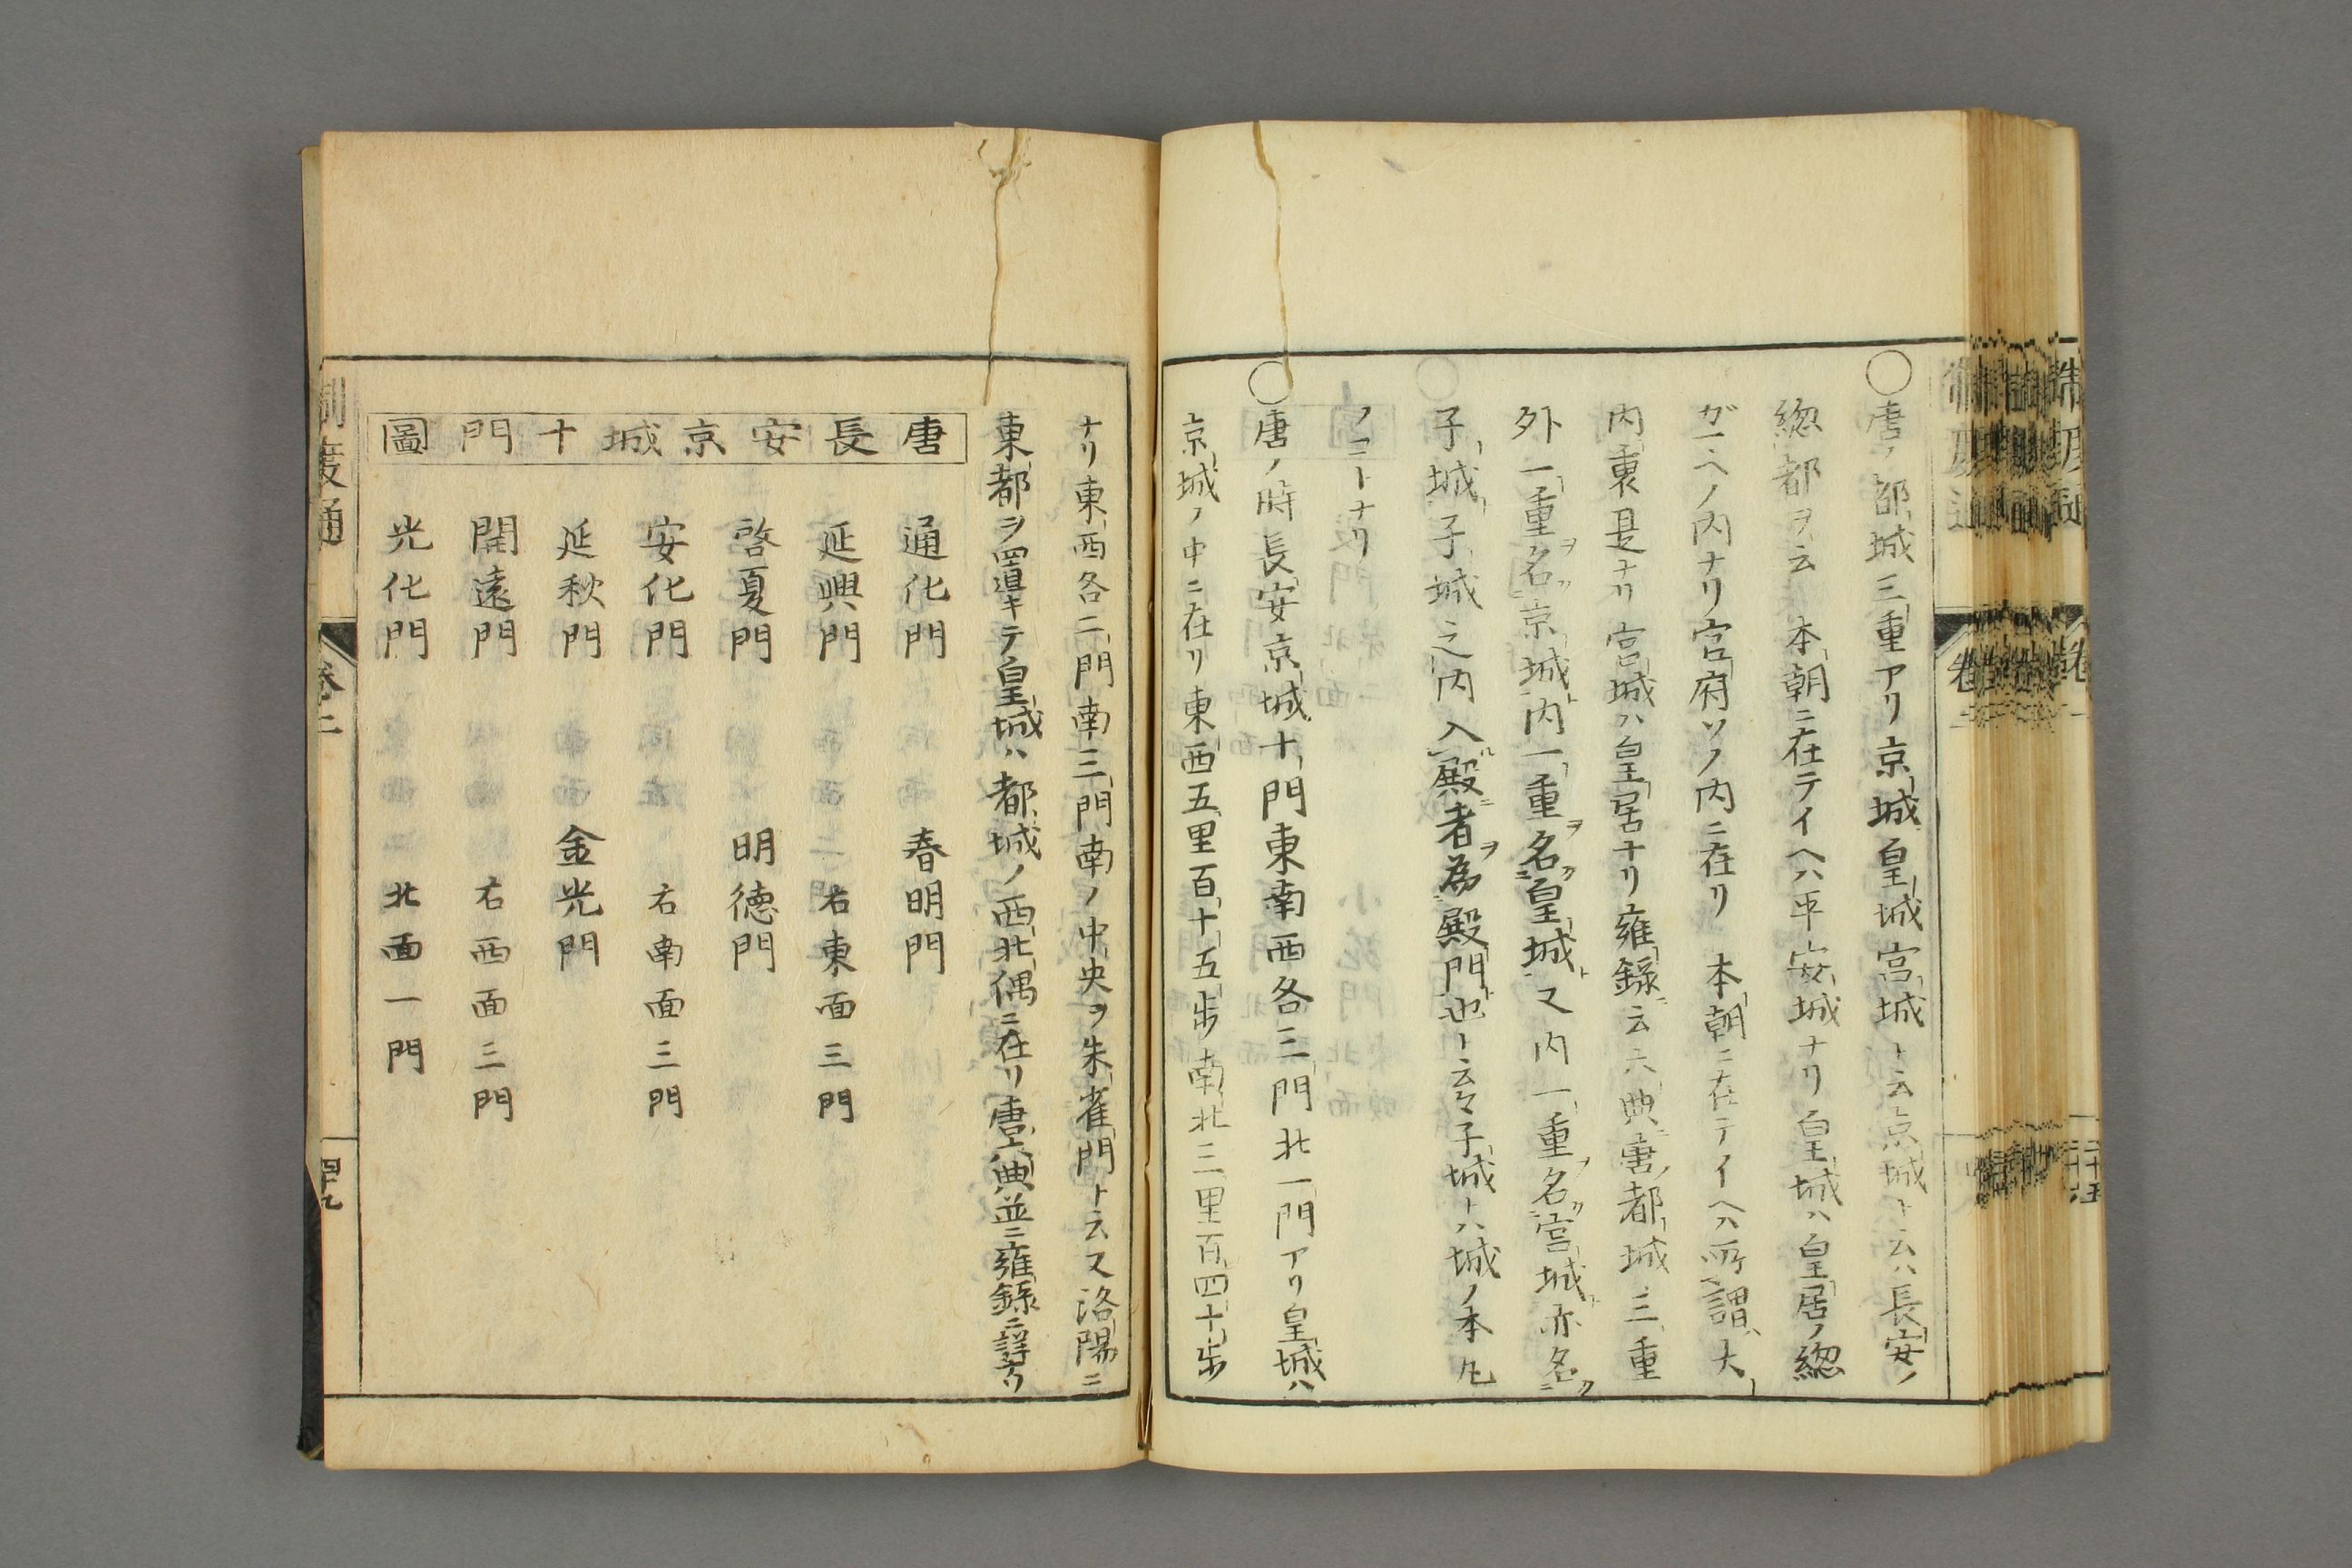 ○唐ノ都城三重アリ京城皇城宮城ト云京城ト云ハ長安ノ
総都ヲ云 本朝ニ在テイヘハ平安城ナリ皇城ハ皇居ノ総
ガマヘノ内ナリ官府ソノ内ニ在リ 本朝ニ在テイヘハ所謂大
内裏是ナリ宮城ハ皇居ナリ雍錄云六典唐都城三重
外一重名京城内一重名皇城又内一重名宮城亦名
子城子城之内入殿者為殿門也ト云々子城トハ城ノ本丸
ノコトナリ
○唐ノ時長安京城十門東南西各三門北一門アリ皇城ハ
京城ノ中ニ在リ東西五里百十五步南北三里百四十步
ナリ東西各二門南三門南ノ中央ヲ朱雀門ト云又洛陽ニ
東都ヲ置キテ皇城ハ都城ノ西北偶ニ在リ唐六典並ニ雍錄ニ詳ナリ
唐長安京城十門圖
通化門 春明門
延興門 右東面三門
啓夏門 明德門
安化門 右南面三門
延秋門 金光門
開遠門 右西面三門
光化門 北面一門
制度通
卷二
四十九